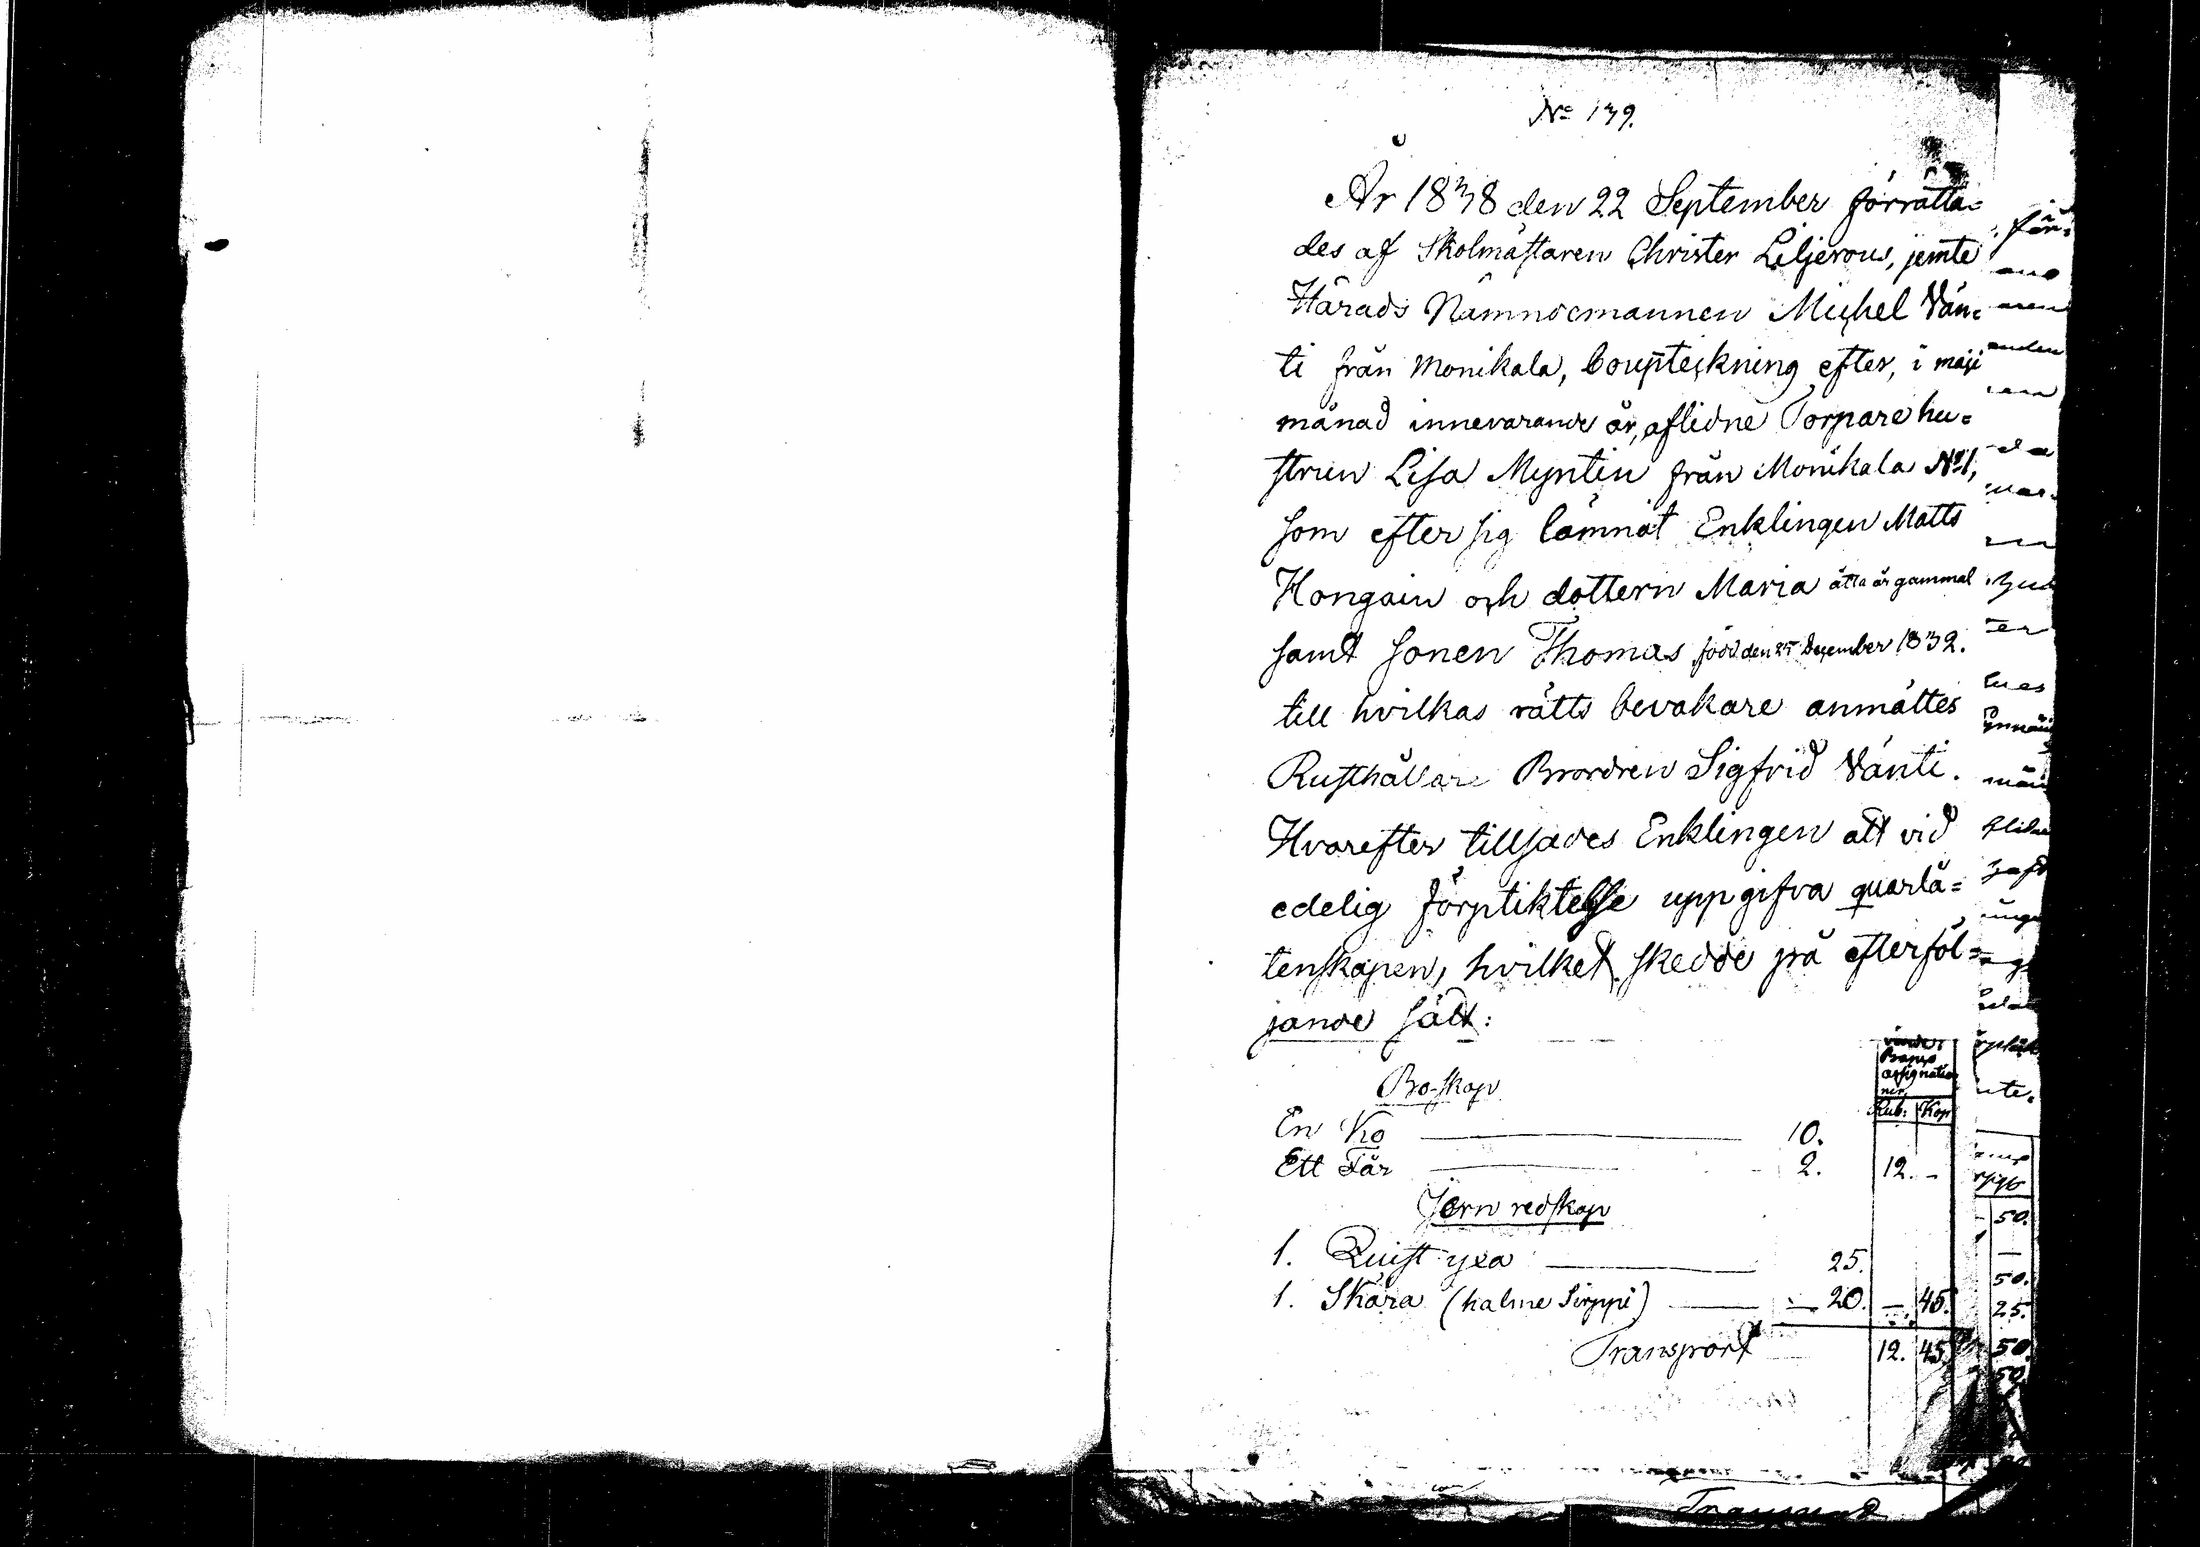 No 139.
År 1838 den 22 September förrätta=
des af Skolmästaren Christer Liljerous, jemte
Härads Nämndemannen Michel Vän=
ti från Monikala, bouptekning efter, i maji
månad innevarande år, aflidne Torpare hu=
strun Lisa Myntin från Monikala No 1,
som efter sig lämnat Enklingen Matts
Hongain och dottern Maria åtta år gammal
samt sonen Thomas född den 25 December 1832.
till hvilkas rätts bevakare anmältes
Rusthållare Brordren Sigfrid Vänti.
Hvarefter tillsades Enklingen att vid
edelig förptiktelse uppgifva quarlå=
tenskapen, hvilket skedde på efterföl=
jande sätt:
Banco
assignatio
ner
Rub: Kop
Bo-skap
En Ko 10.
Ett Får 2. 12. -
Jern redskap
1. Quist yxa 25.
1. Skära (halme Sirppi) — 20. — 45.
Transport 12. 45
50.
—
50.
25.
50.
50.
Transport